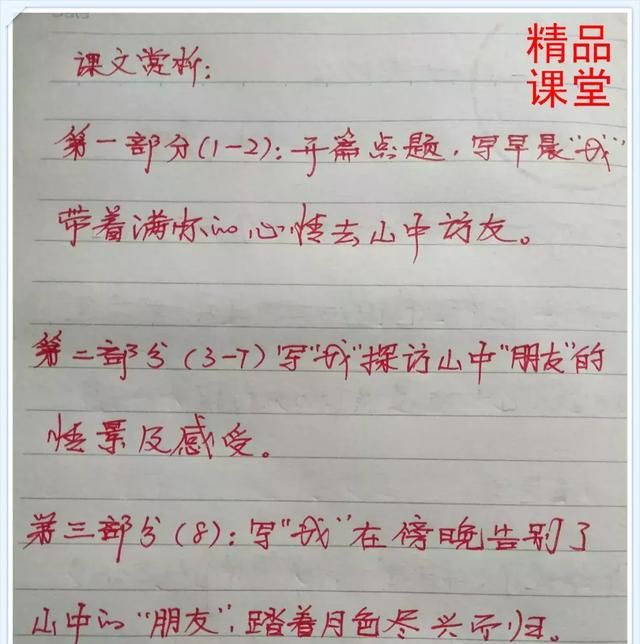 精品
课堂
课文赏析:
第一部分(1-2):开篇点题,写早晨“我”
带着满怀的心情去山中访友。
第二部分(3-7)写“我”探访山中“朋友”的
情景及感受。
第三部分(8):写“我”在傍晚告别了
山中的“朋友”,踏着月色尽兴而归。